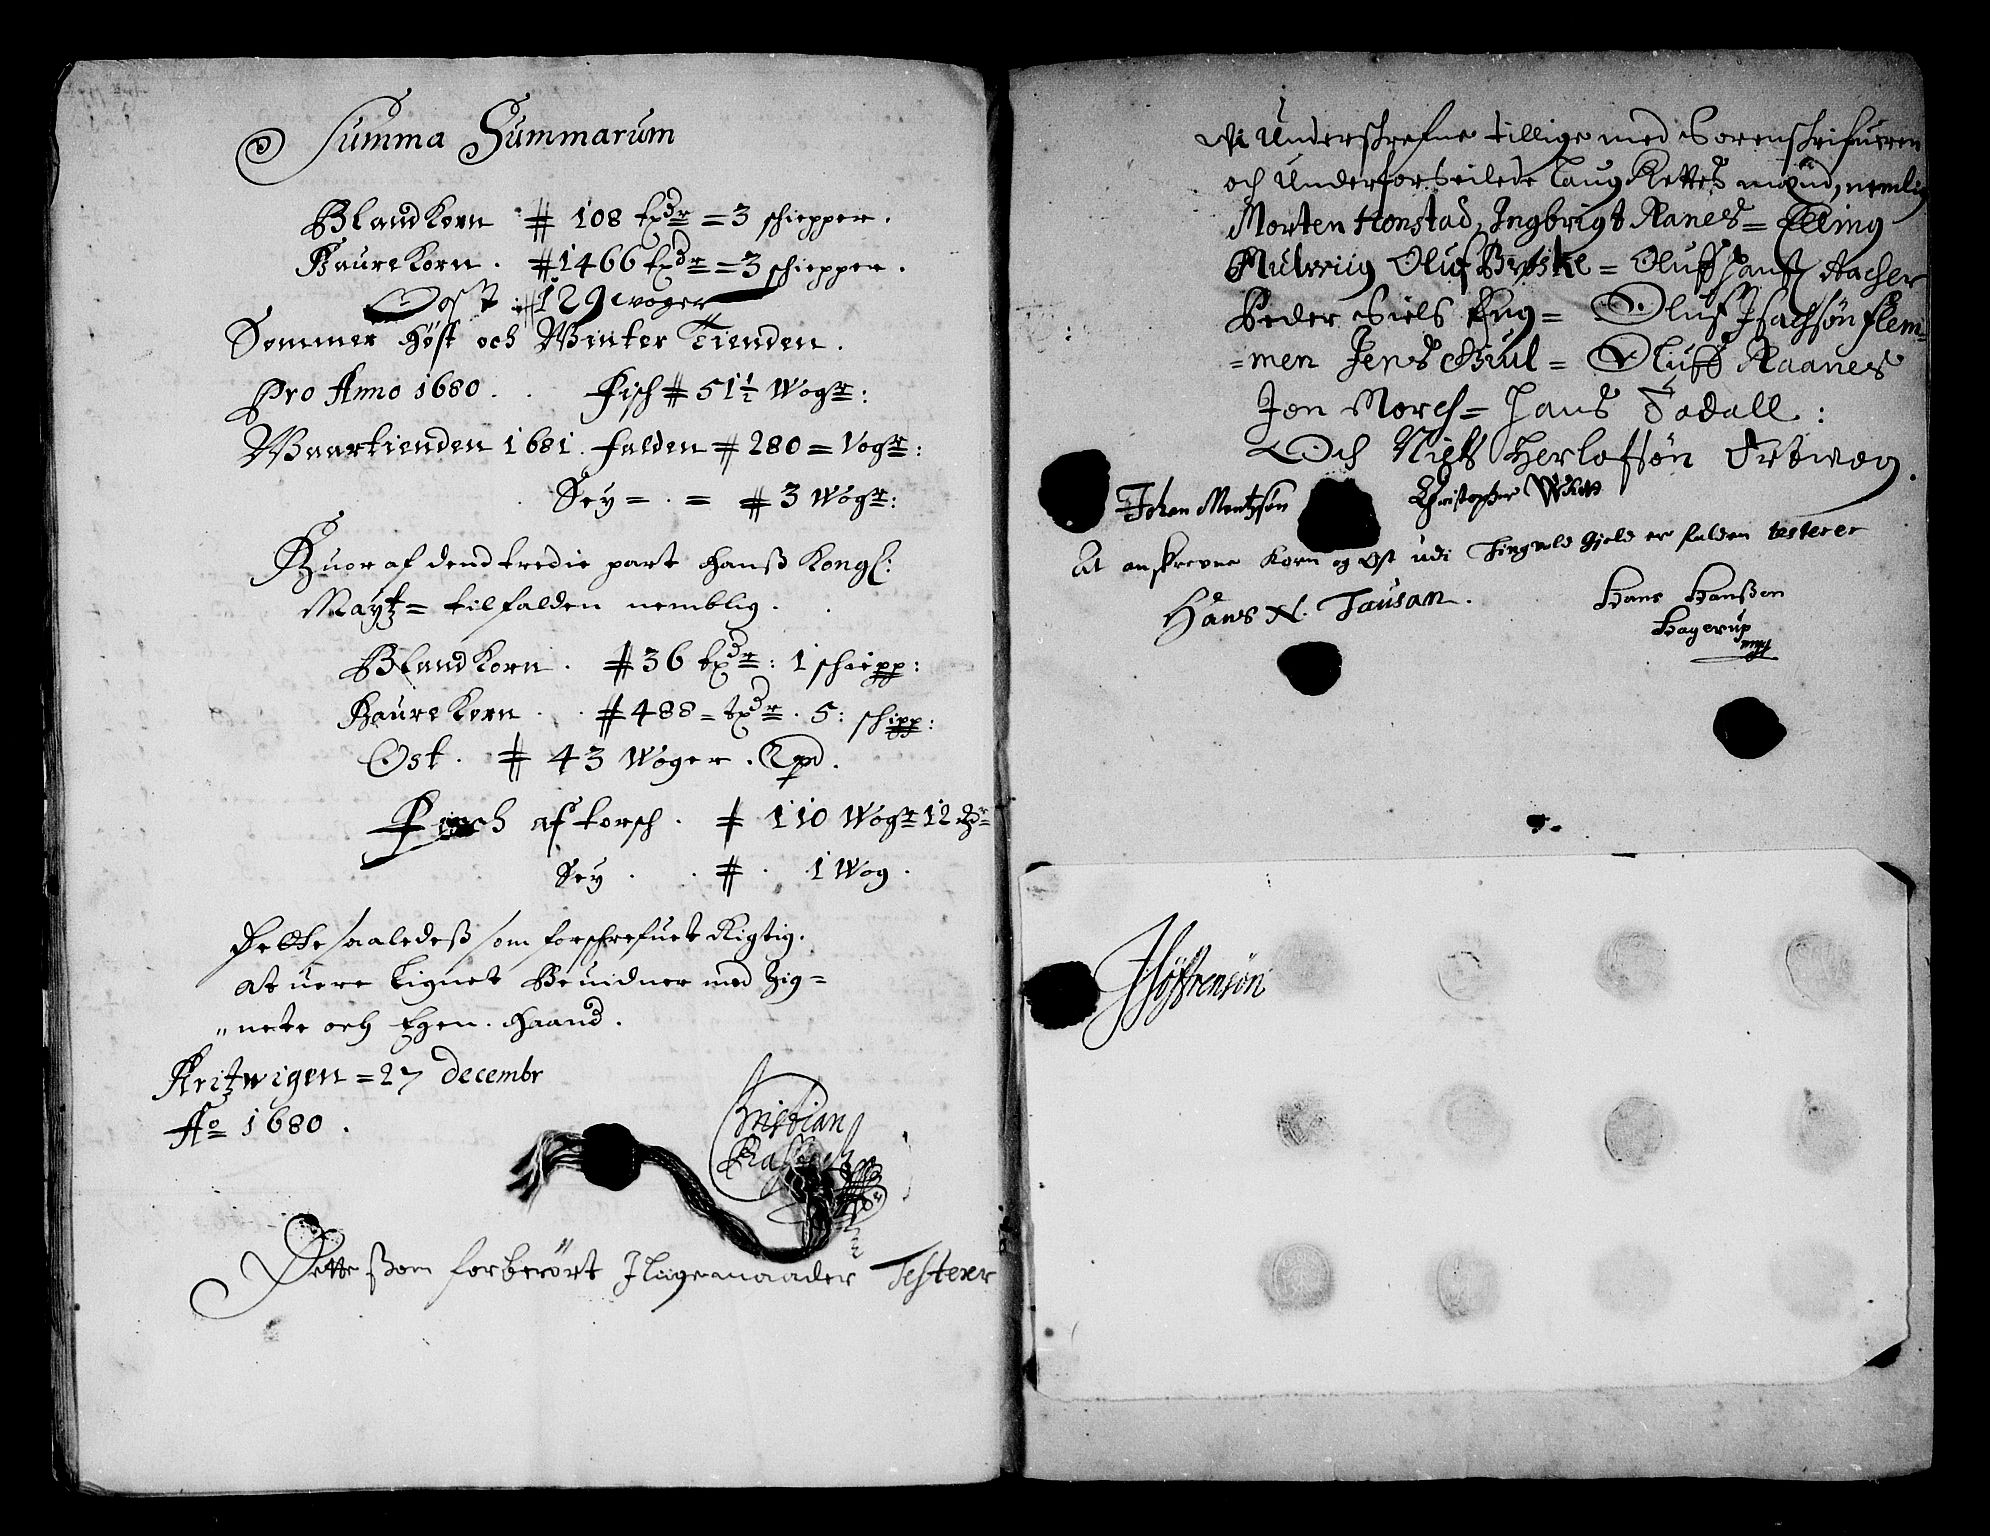 Summa Summarum
Blandkorn # 108 tpdr = 3 schiepper.
Haurekorn. # 1466 tpdr = 3 schiepper.
Ost # 129 woger
Sommer Høst och Winter Tienden.
Pro Anno 1680. Fisch # 51½ Wogr:
Waartienden 1681. falden # 280 = Vogr:
Sey = . = # 3 Wogr:
Huor af dend tredie part Hanß Kongl:
Maytz = tilfalden nemblig.
Blandkorn. # 36 tpdr: 1 schiepp:
Haurekorn . . # 488 = tpdr. 5: schipp:
Ost. # 43 Woger.
af torsch. # 110 Wogr 12
Sey . . # . 1 Wog.
Dette saaledeß som forschrefuet Rigtig.
at uere Lignet Beuidner med Zig=
"nete och Egen. Haand.
=27 decembr
Ao 1680.
Christian
Dette ßom forberørt J ligemaader Testerer
Wi Underschrefne tillige med Sorenschrifueren
och Underforseilede Laug Rettes mænd, nemlig
Morten Honstad, Ingbrigt Ranes = Elling
Oluf = Oluff Hanß Aacher
Peder Niels Eng = Oluf Jsachsøn flem=
=men Jens Guul = Oluff Raanes
Jon Morch = Hans Todall:
Och Niels Herlofsøn Ørtwog.
Johan Mentzsøn
Christopher
At anskrevne Korn og Ost udi Tingvold Gield er falden testerer
Hans N. Tausan.
Hans Hanßen
Hagerup
mpp